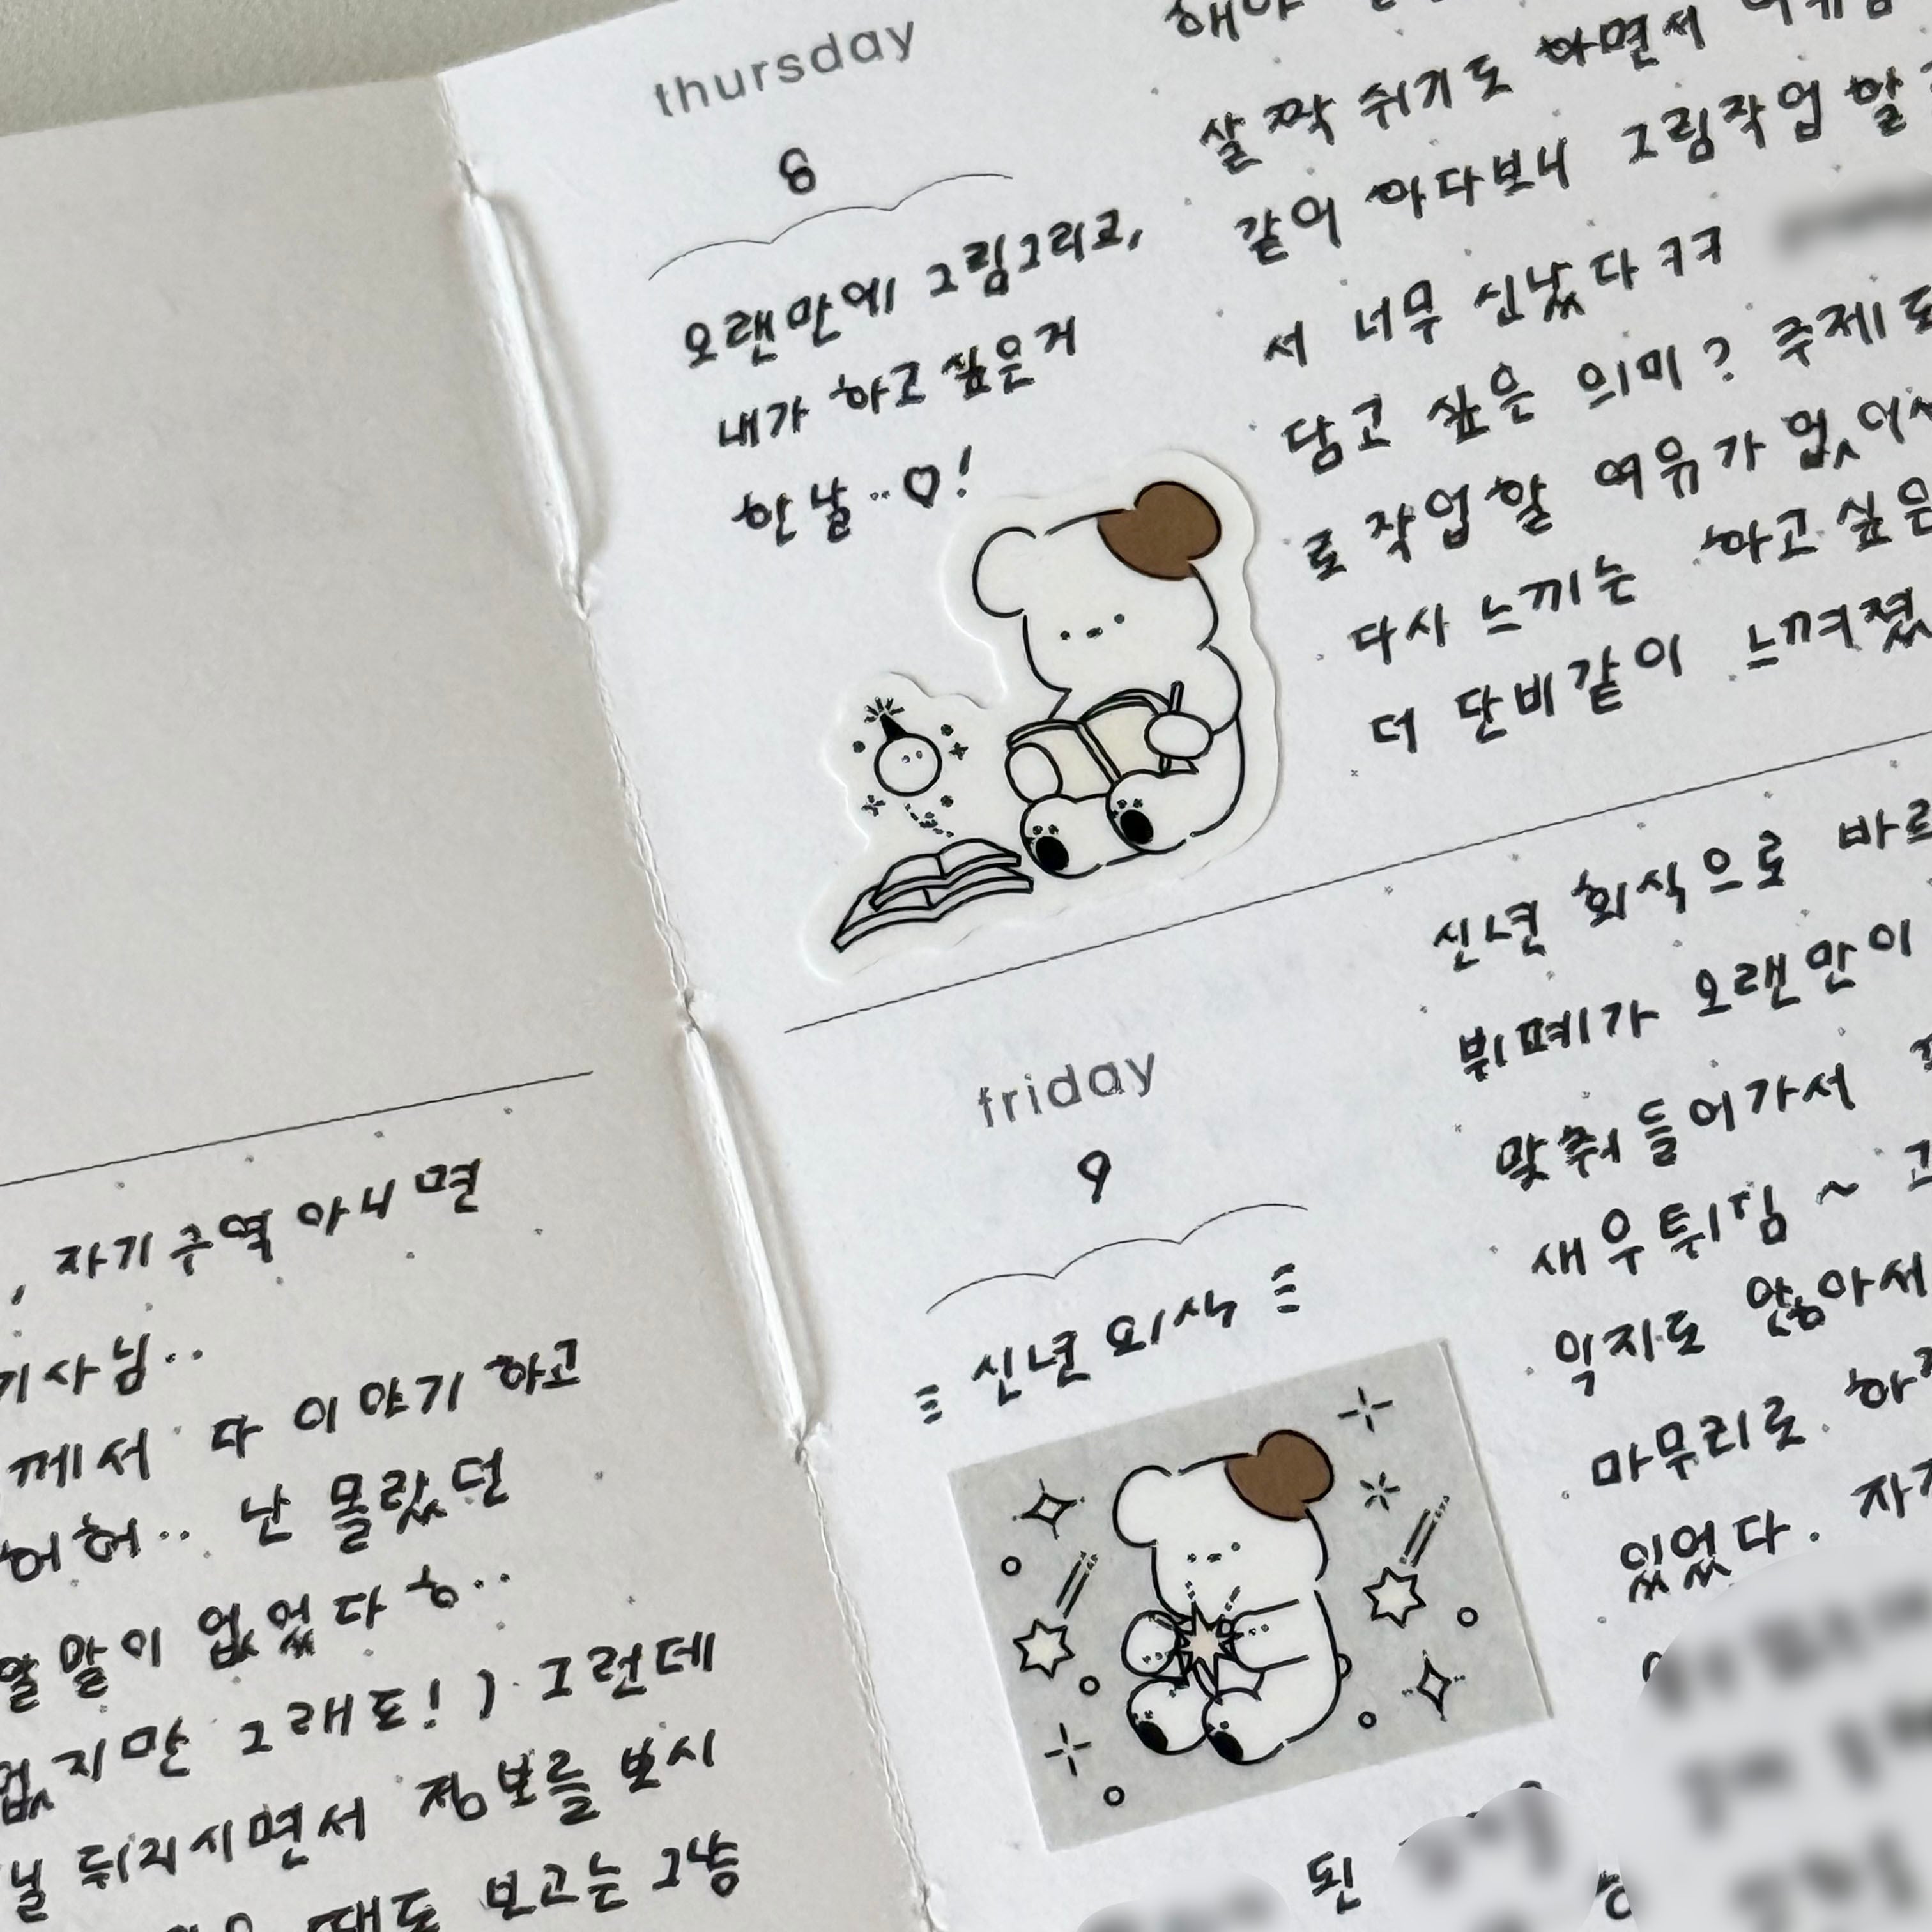 자기구역 아니면
기사님..
께서 다 이야기 하고
허허.. 난 몰랐던
할 말이 없었다 ㅎ..
없지만 그래도!) 그런데
뒤지시면서 정보를 보시
때도 보고는 그냥
thursday
8
오랜만에 그림그리고,
내가 하고 싶은거
한 날..♡!
해야
살짝 쉬기도 하면서
같이 하다보니 그림작업 할
서 너무 신났다 ㅋㅋ
담고 싶은 의미? 주제로
로 작업할 여유가 없어서
다시 느끼는 하고싶은
더 단비같이 느껴졌
friday
9
신년 회식
신년 회식으로 바로
뷔페가 오랜만이
맞춰 들어가서
새우튀김 ~
익지도 않아서
마무리로 하
있었다. 자기
된